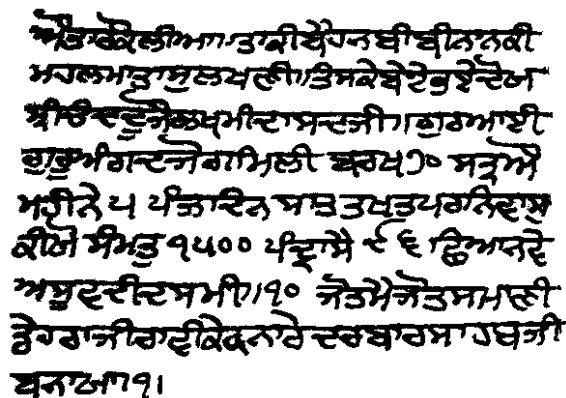 ਐਤਾ ਰਕੌ ਲੀਆ॥ ਤਾਕੀ ਥੈ ਹਨ ਬੀਬੀ ਨਾਨਕੀ
ਮਹਲ ਮਾਤਾ ਸੁਲਖਣੀ॥ ਤਿਸਕੇ ਬੇਟੇ ਭਏ ਦੋਖ
ਸ੍ਰੀਚੰਦ ਲਖਮੀਦਾਸ ਜੀ॥ ਗੁਰਆਈ
ਗੁਰੂ ਅੰਗਦ ਜੋਗ ਮਿਲੀ ਬਰਖ ੭੦ ਸਤ੍ਰ ਐ
ਮਹੀਨੇ ੫ ਪੰਜ ਦਿਨ ਸਤ ਤਖਤ ਪਰ ਨਿਵਾਸੁ
ਕੀਓ ਸੰਮਤੁ ੧੫੦੦ ਪੰਦ੍ਰਾ ਸੈ ੯੬ ਛਿਆਨਵੇ
ਅਸੂ ਵਦੀ ਦਸਮੀ॥੧੦ ਜੋਤ ਮੈ ਜੋਤ ਸਮਾਣੀ
ਡੇਹਰਾ ਜੀ ਰਾਵੀ ਕੇ ਕਨਾਰੇ ਦਰਬਾਰ ਸਾਹਬ ਜੀ
ਬਨਾਆ॥੧।